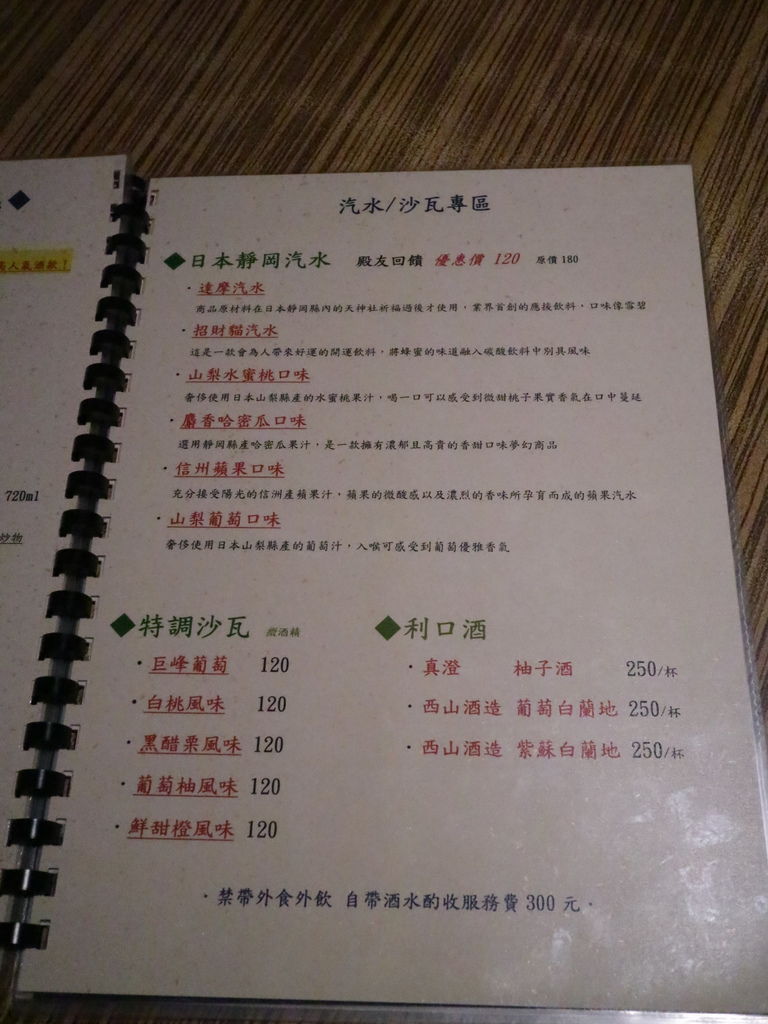 720ml
炒物
汽水/沙瓦專區
◆日本靜岡汽水 殿友回饋 優惠價 120 原價 180
·達摩汽水
商品原材料在日本靜岡縣內的天神社祈福過後才使用,業界首創的應援飲料,口味像雪碧
·招財貓汽水
這是一款會為人帶來好運的開運飲料,將蜂蜜的味道融入碳酸飲料中別具風味
·山梨水蜜桃口味
奢侈使用日本山梨縣產的水蜜桃果汁,喝一口可以感受到微甜桃子果實香氣在口中蔓延
·麝香哈密瓜口味
選用靜岡縣產哈密瓜果汁,是一款擁有濃郁且高貴的香甜口味夢幻商品
·信州蘋果口味
充分接受陽光的信洲產蘋果汁,蘋果的微酸感以及濃烈的香味所孕育而成的蘋果汽水
·山梨葡萄口味
奢侈使用日本山梨縣產的葡萄汁,入喉可感受到葡萄優雅香氣
◆特調沙瓦 微酒精
·巨峰葡萄 120
·白桃風味 120
·黑醋栗風味 120
·葡萄柚風味 120
·鮮甜橙風味 120
◆利口酒
·真澄 柚子酒 250/杯
·西山酒造 葡萄白蘭地 250/杯
·西山酒造 紫蘇白蘭地 250/杯
·禁帶外食外飲 自帶酒水酌收服務費 300 元·